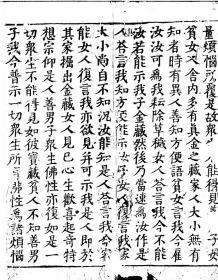 量煩惱所覆是故衆能得見子
貧女人舍內多有真金之藏家人大小無有
知者時有異人善知方便語貧女人我今雇
汝汝可為我耘除草穢女人答言我今不能
汝若能示我子金藏然後乃當速為汝作是
人答言我知方便能示汝子女人復言我家
大小尚自不知況汝能知是人答言我今審
能女人復言我亦欲見并可示我是人即於
其家掘出金藏女人見已心生歡喜起奇特
想宗仰是人善男子衆生佛性亦復如是一
切衆生不能得見如彼寶藏貧人不知善男
子我今普示一切衆生所佛性為諸煩惱